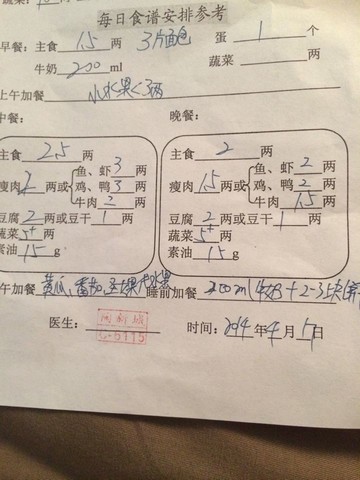 蔬菜:
每日食谱安排参考
早餐: 主食 1.5 两 3片面包 蛋 1 个
牛奶 200 ml 蔬菜 两
上午加餐 小水果<3两
中餐: 晚餐:
主食 2.5 两
瘦肉 2 两或
鱼、虾 3 两
鸡、鸭 3 两
牛肉 2 两
豆腐 2 两或豆干 1 两
蔬菜 5+ 两
素油 15 g
主食 2 两
瘦肉 1.5 两或
鱼、虾 2 两
鸡、鸭 2 两
牛肉 1.5 两
豆腐 2 两或豆干 1 两
蔬菜 5+ 两
素油 15 g
午加餐 黄瓜,番茄, 代水果 睡前加餐 200ml牛奶+2-3块饼
医生: 时间: 2014 年 4 月 日
C-6115